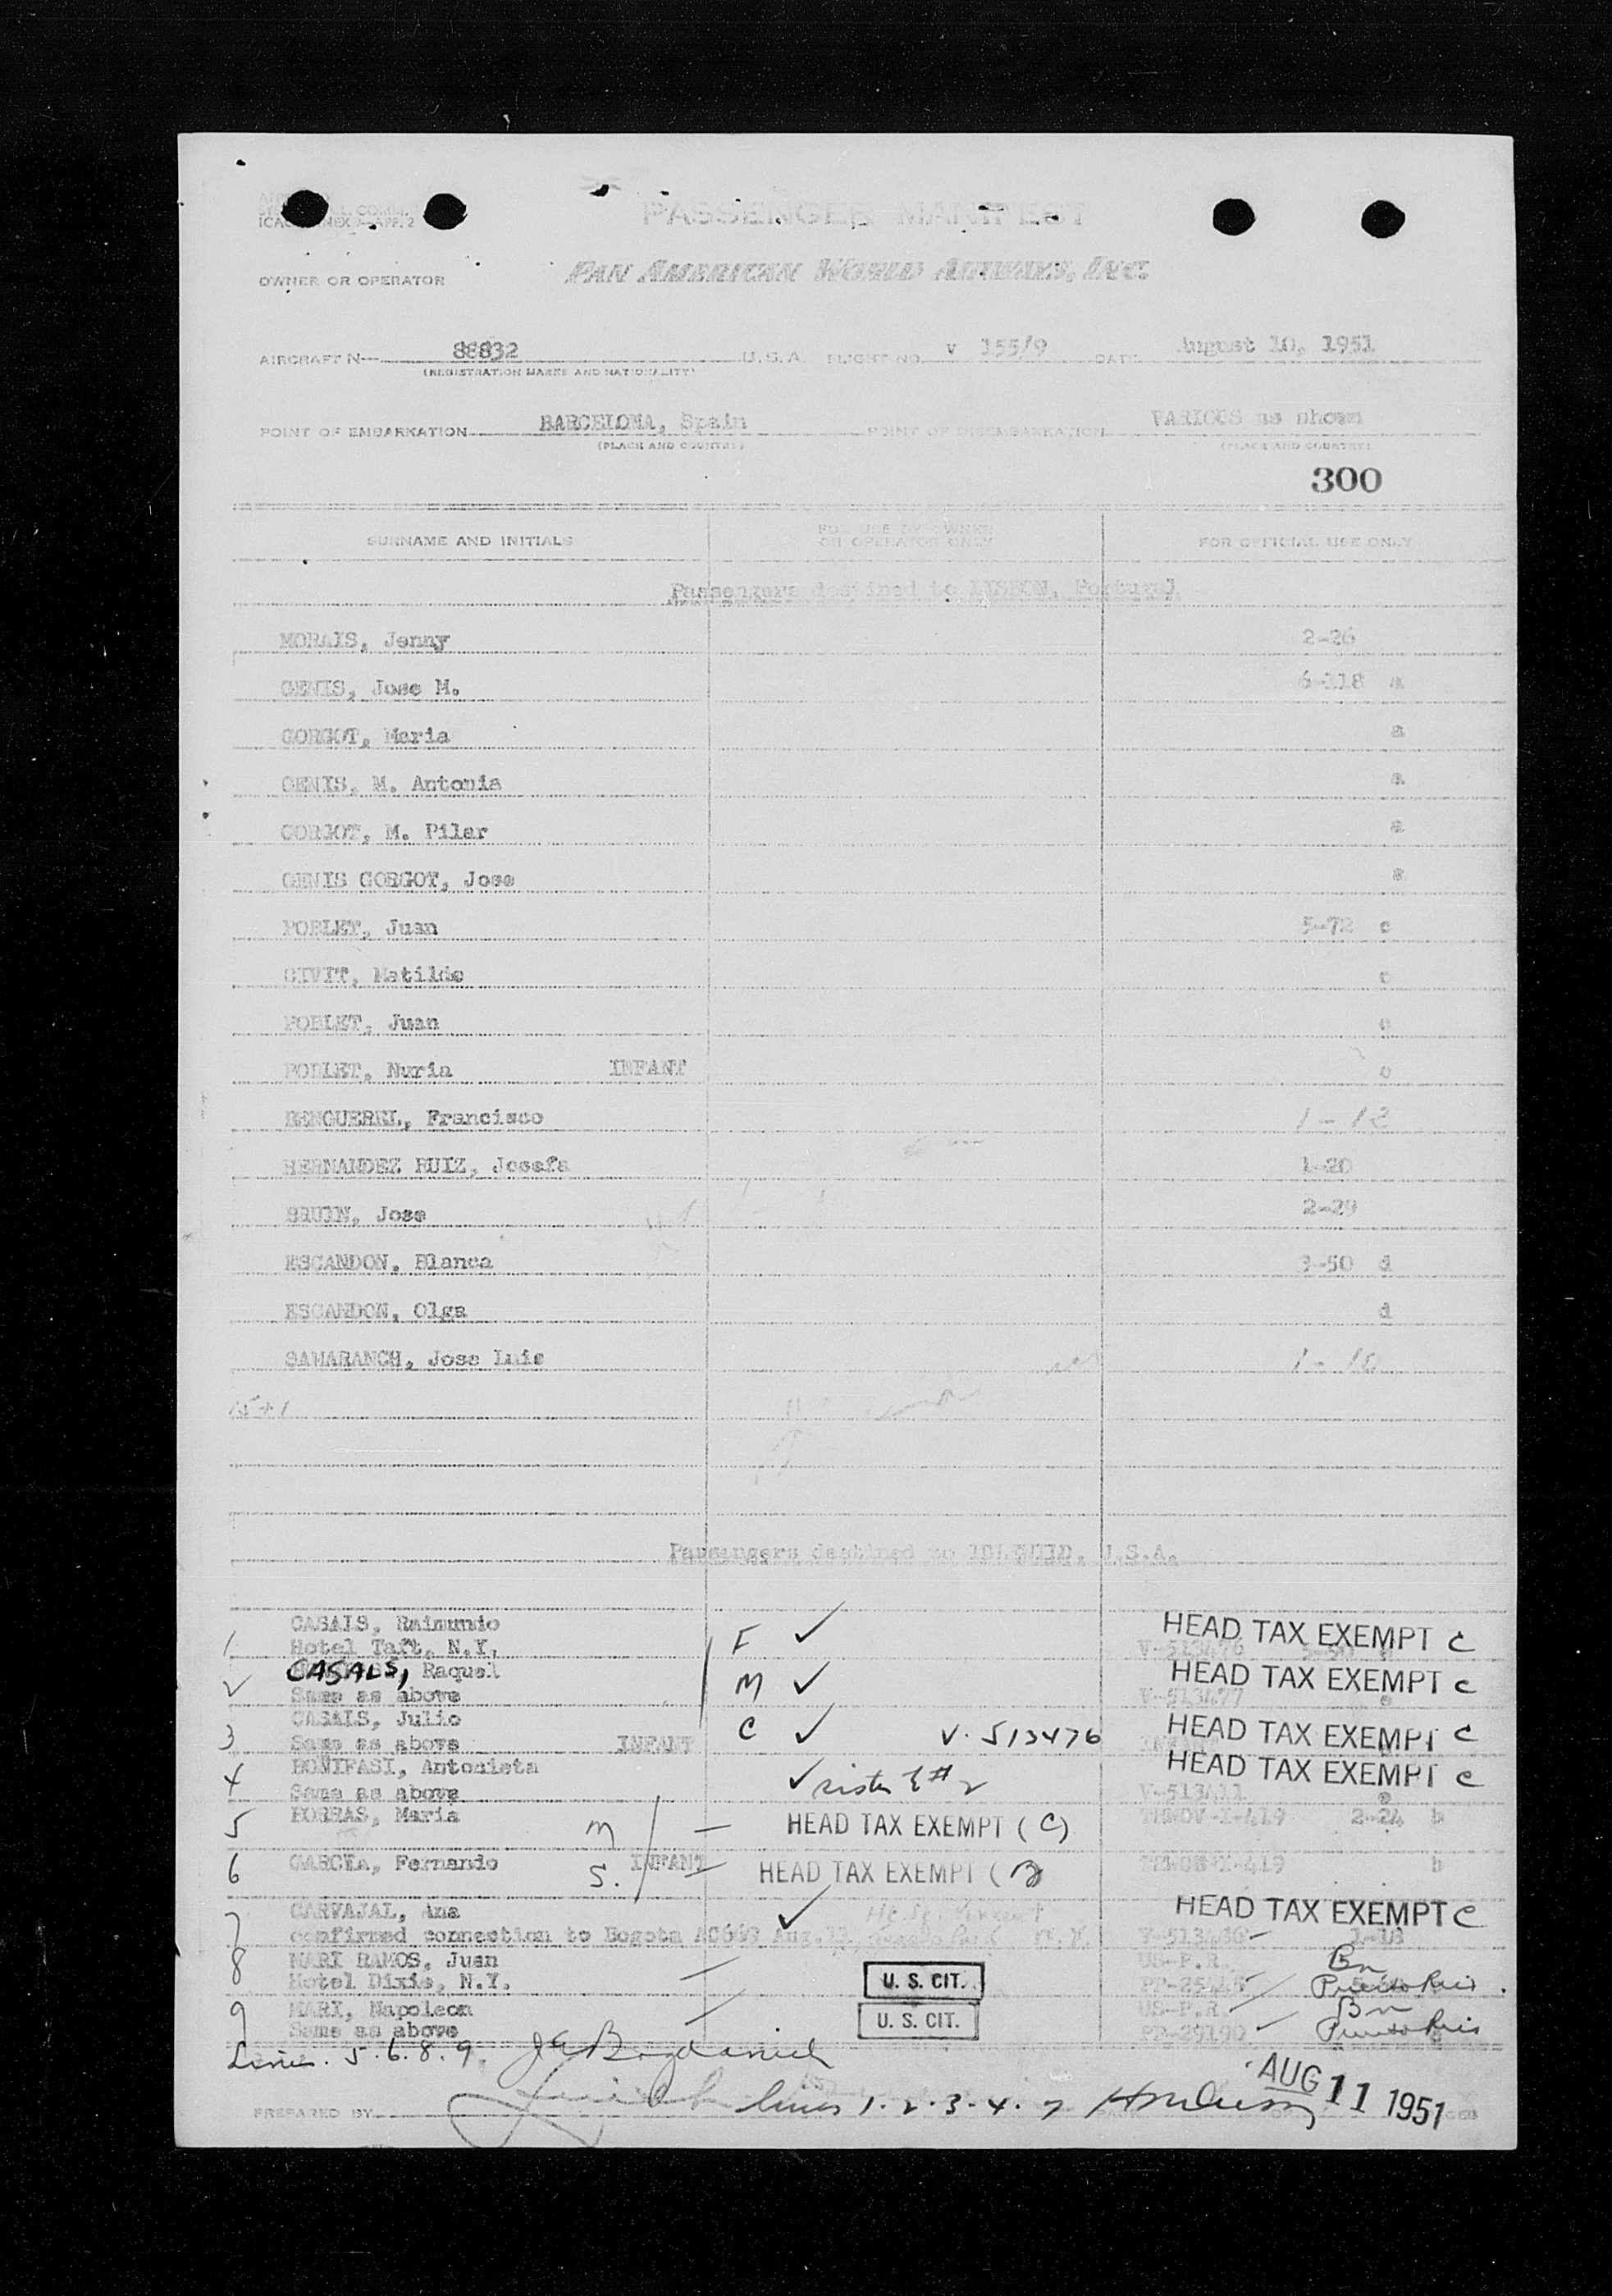 ICAO ANNEX 9 APP. 2
PASSENGER MANIFEST
OWNER OR OPERATOR PAN AMERICAN WORLD AIRWAYS, INC.
AIRCRAFT N- 88832 U.S.A. FLIGHT NO. v 155/9 DATE August 10, 1951
(REGISTRATION MARKS AND NATIONALITY)
POINT OF EMBARKATION BARCELONA, Spain POINT OF DISEMBARKATION VARIOUS as shown
(PLACE AND COUNTRY) (PLACE AND COUNTRY)
300
SURNAME AND INITIALS FOR USE BY OWNER OR OPERATOR ONLY FOR OFFICIAL USE ONLY
Passengers destined to LISBON, Portugal
MORAIS, Jenny 2-26
GENIS, Jose M. 6-118 a
GORGOT, Maria a
GENIS, M. Antonia a
GORGOT, M. Pilar a
GENIS GORGOT, Jose a
POBLET, Juan 5-72 c
CIVIT, Matilde c
POBLET, Juan c
POBLET, Nuria INFANT c
BENGUEREL, Francisco 1-12
HERNANDEZ RUIZ, Josefa 1-20
BRUIN, Jose 2-29
ESCANDON, Blanca 3-50 d
ESCANDON, Olga d
SAMARANCH, Jose Luis 1-10
15+1
Passengers destined to IDLEWILD, U.S.A.
CASALS, Raimundo HEAD TAX EXEMPT C
1 Hotel Taft, N.Y. F ✓ V-513476
CASALS, Raquel M ✓ HEAD TAX EXEMPT C
2 Same as above V-513477
CASALS, Julio C ✓ V-513476 HEAD TAX EXEMPT C
3 Same as above INFANT
BONIFASI, Antonieta HEAD TAX EXEMPT C
4 Same as above ✓ sister of # 2 V-513411
5 BORRAS, Maria M — HEAD TAX EXEMPT (C) 2-24 b
6 GARCIA, Fernando S. INFANT — HEAD TAX EXEMPT ( b
CARVAJAL, Ana ✓ HEAD TAX EXEMPT C
7 confirmed connection to Bogota Aug. N.Y. 1-18
8 MARI RAMOS, Juan US-P.R. Bn
Hotel Dixie, N.Y. U. S. CIT. Puerto Rico
9 MARI, Napoleon US-P.R. Bn
Same as above U. S. CIT. PP-29190 Puerto Rico
Lines. 5. 6. 8. 9.
AUG 11 1951
PREPARED BY lines 1. 2. 3. 4. 7